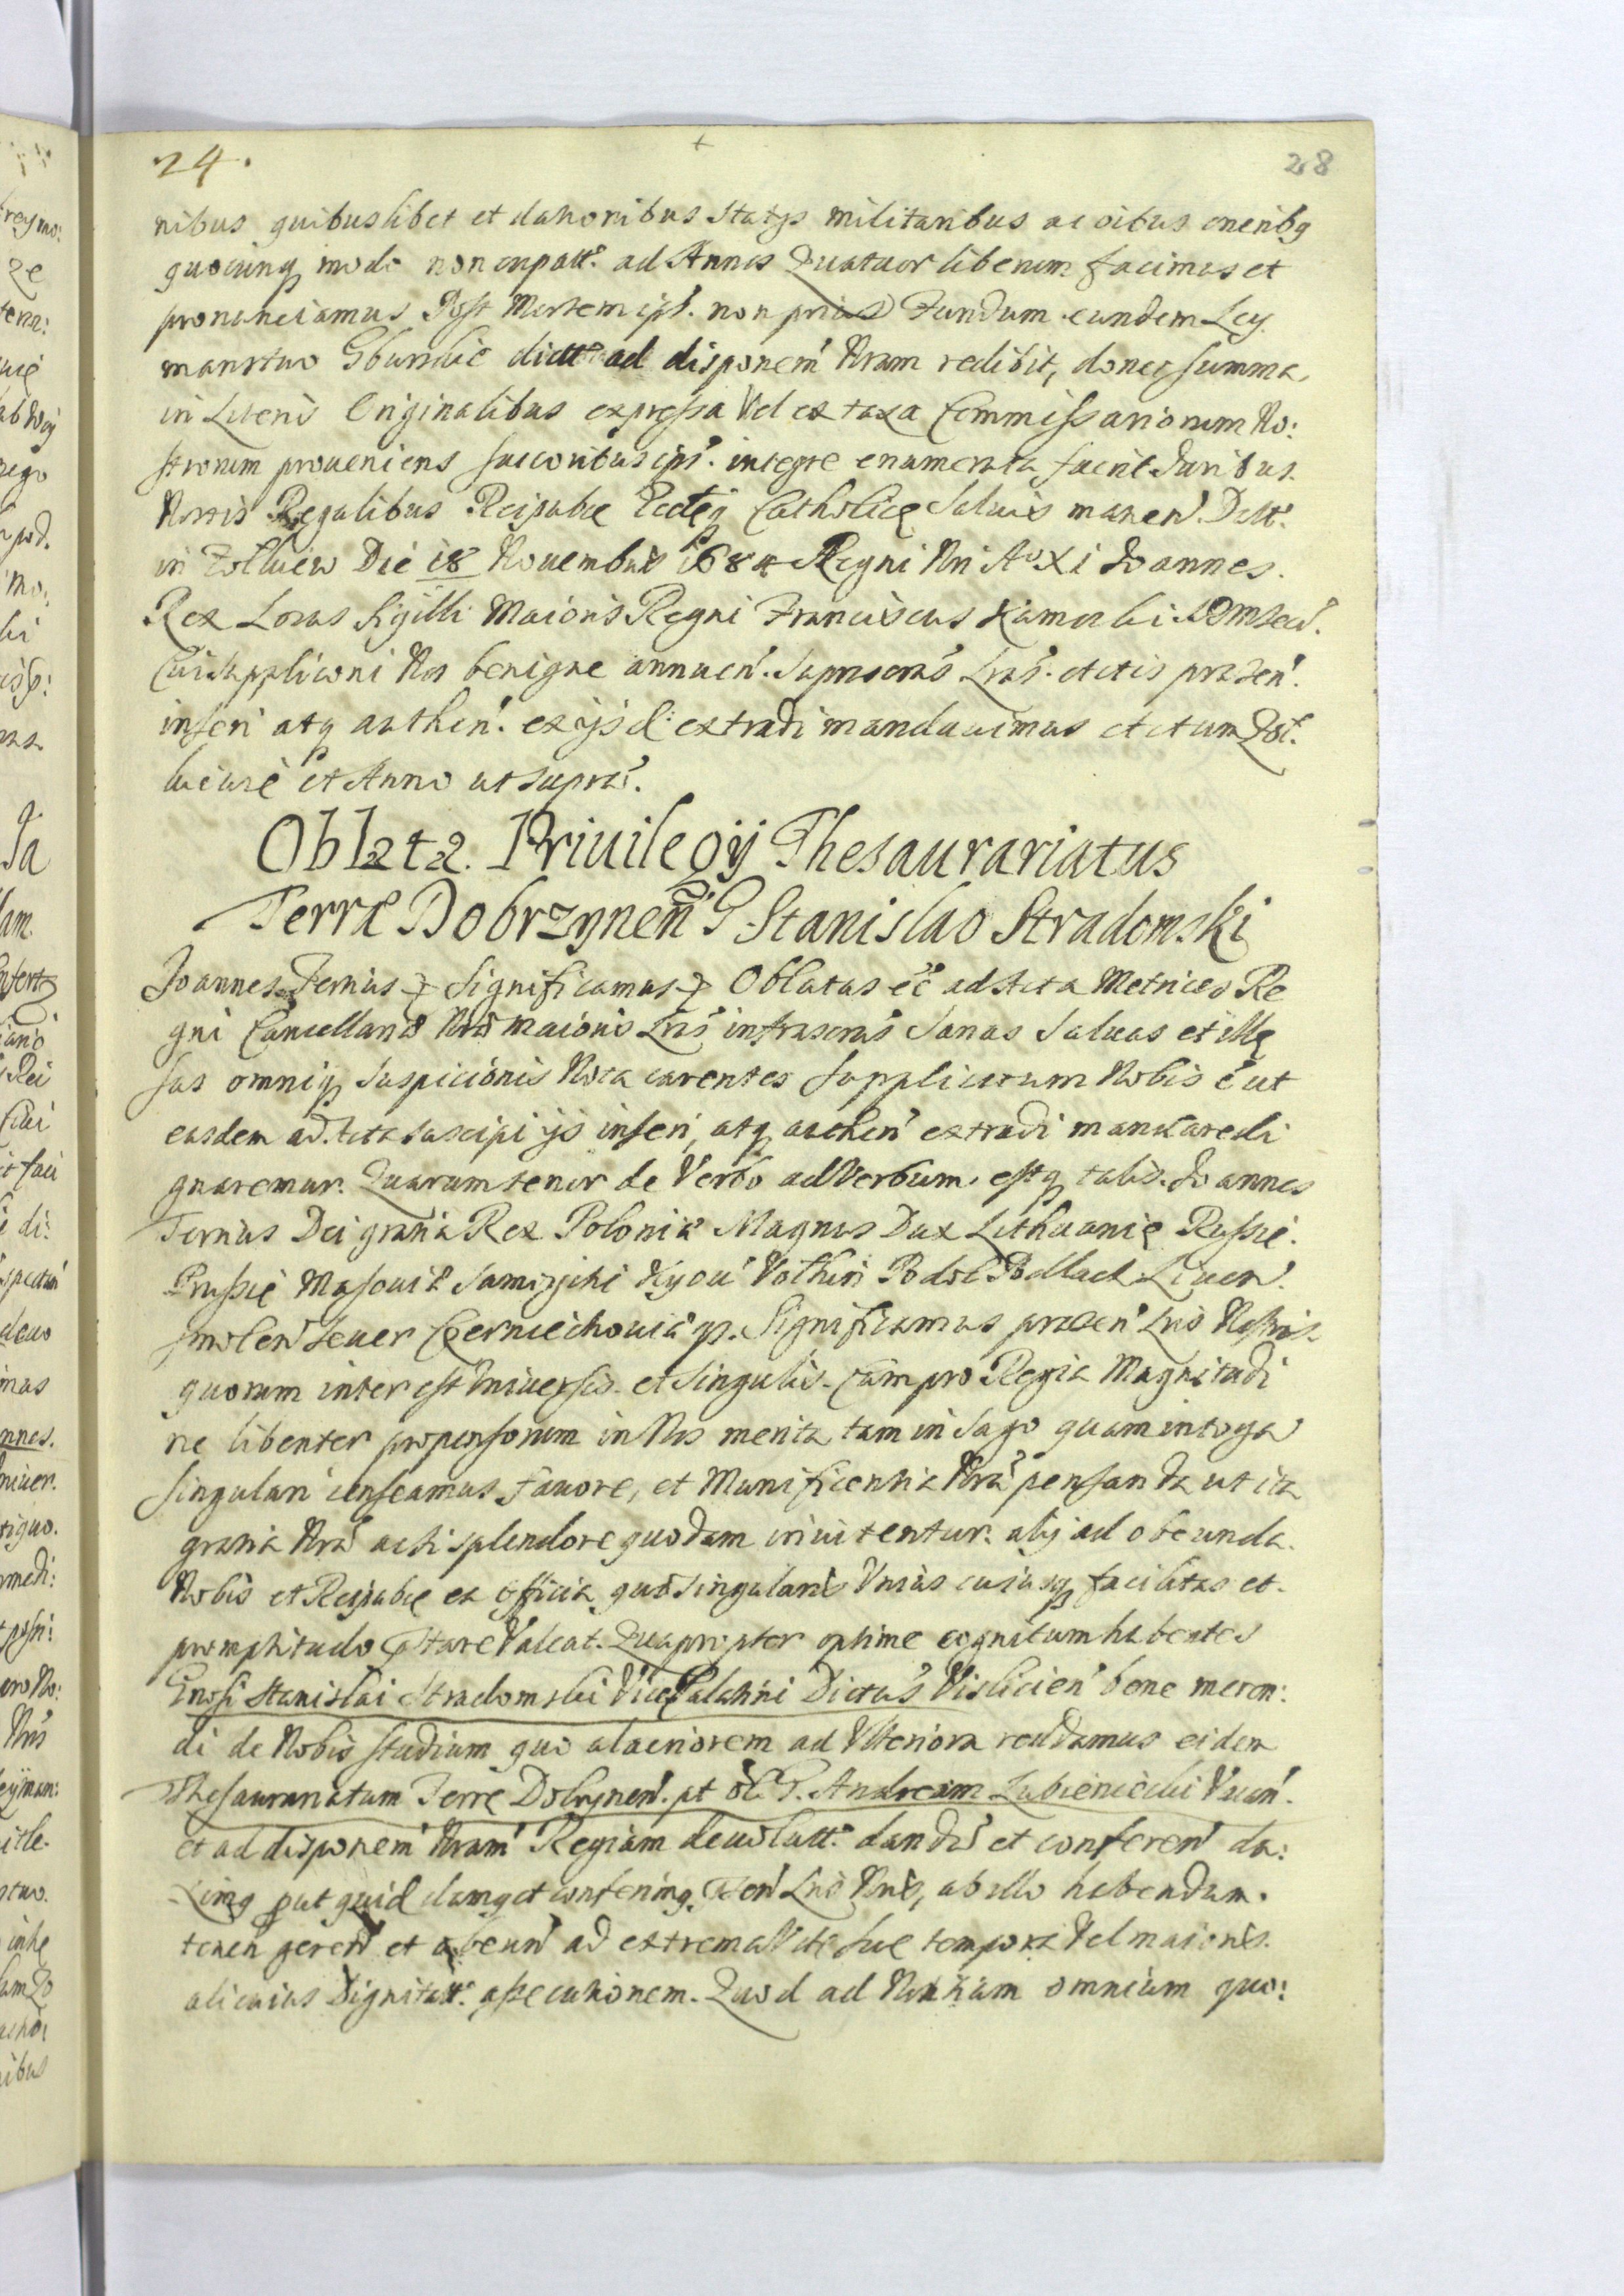 24.
28
nibus quibuslibet et dationibus Statys militaribus ac oibus oneribq
quocunq modo noncupatt. ad Annos Quatuor liberum facimus et
pronunciamus Post Mortem ips. non prius Fundum eundem Ley
manstwo Gburskie dictt ad disponem Nram redibit, donec summa
in Literis Originalibus expressa Vel ex taxa Commissariorum No:
strorum proueniens succoribus ips. integre enumerata fuerit Juribus.
Nostris Regalibus Reipublce Catholice Saluis manen. Datt.
in Zolkiew Die 18 Nouembris 1684 Regni Nri Ao XI Joannes
Rex Locus Sigilli Maioris Regni Franciscus
Cui suppliconi Nos benigne annuen. suprascras Lras. actis praesen.
inseri atq authen. ex ijsd: extradi mandauimus Actum Zol:
kiewie et Anno ut supra.
Oblata Priuilegij Thesaurariatus
Terrae Dobrzynen G Stanislao Stradomski
Joannes Tertius Significamus Oblatas ee ad Acta Metrices Re
gni Cancellariae Nrae maioris Lras infrascras Sanas Saluas et ille
sas omniq suspicionis Nota carentes supplicatum Nobis e ut
easdem ad Acta suscipi ijs inseri, atq authen extradi mandaredi
gnaremur. Quarum tenor de Verbo ad Verbum, estq talis. Joannes
Tertius Dei gratia Rex Poloniae Magnus Dux Lithuanie Russie.
Prussie Masouiae Samogitiae Kyou Volhin Podol Podlach Liuon
Smolen Seuer Czerniechouiaeq. Significamus praesen Lris Nostris
quorum interest Vniuersis et Singulis. Cum pro Regia Magnitudi
ne libenter propensorum in Nos merita tam in Sago quam in toga
singulari censeamus fauore, et Munificentia Nra pensanda ut ita
gratia Nra acti splendore quodam inuitentur. alij ad obeunda.
Nobis et Reipublce ea officia quae singularis Vnius cuiusq facilitas et
promptitudo pstare Valeat. Quapropter optime cognitum habentes
Gnosi Stanislai Stradomski Vice Palatini Dictus Vislicien bene meren:
di de Nobis studium quo alacriorem ad Vlteriora reddamus eidem
Thesaurariatum Terre Dobrynen. pt ol. G. Andream Lubieniecki Vacan.
et ad disponem Nram Regiam deuolutt. dandu et conferen da:
timq put quid damq et conferimq. psen Lris Nris, ab illo habendum.
tenen geren et obeun ad extrema Vitae sue tempora Vel maioris.
alicuius Dignitatt. assecutionem. Quod ad Notitiam omnium quo: